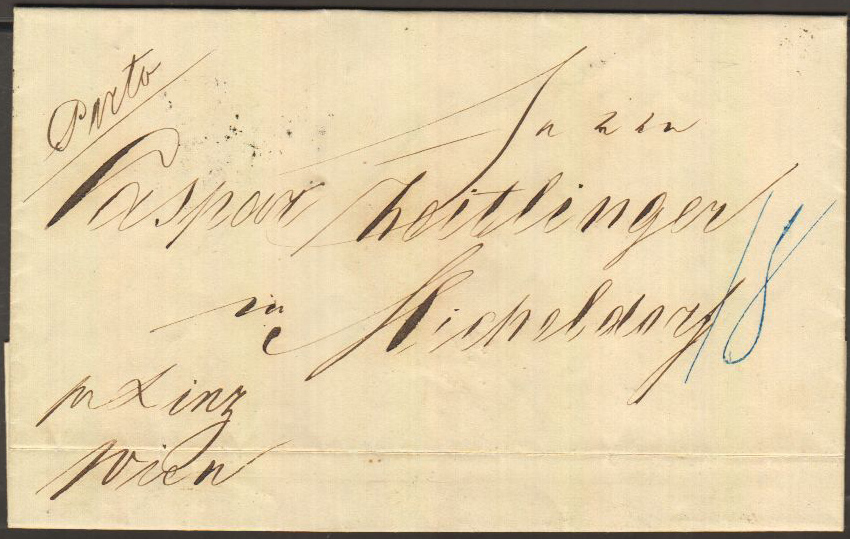 Porto
Herrn
Caspar Zeitlinger
in
Micheldorf
18
pr Linz
Wien